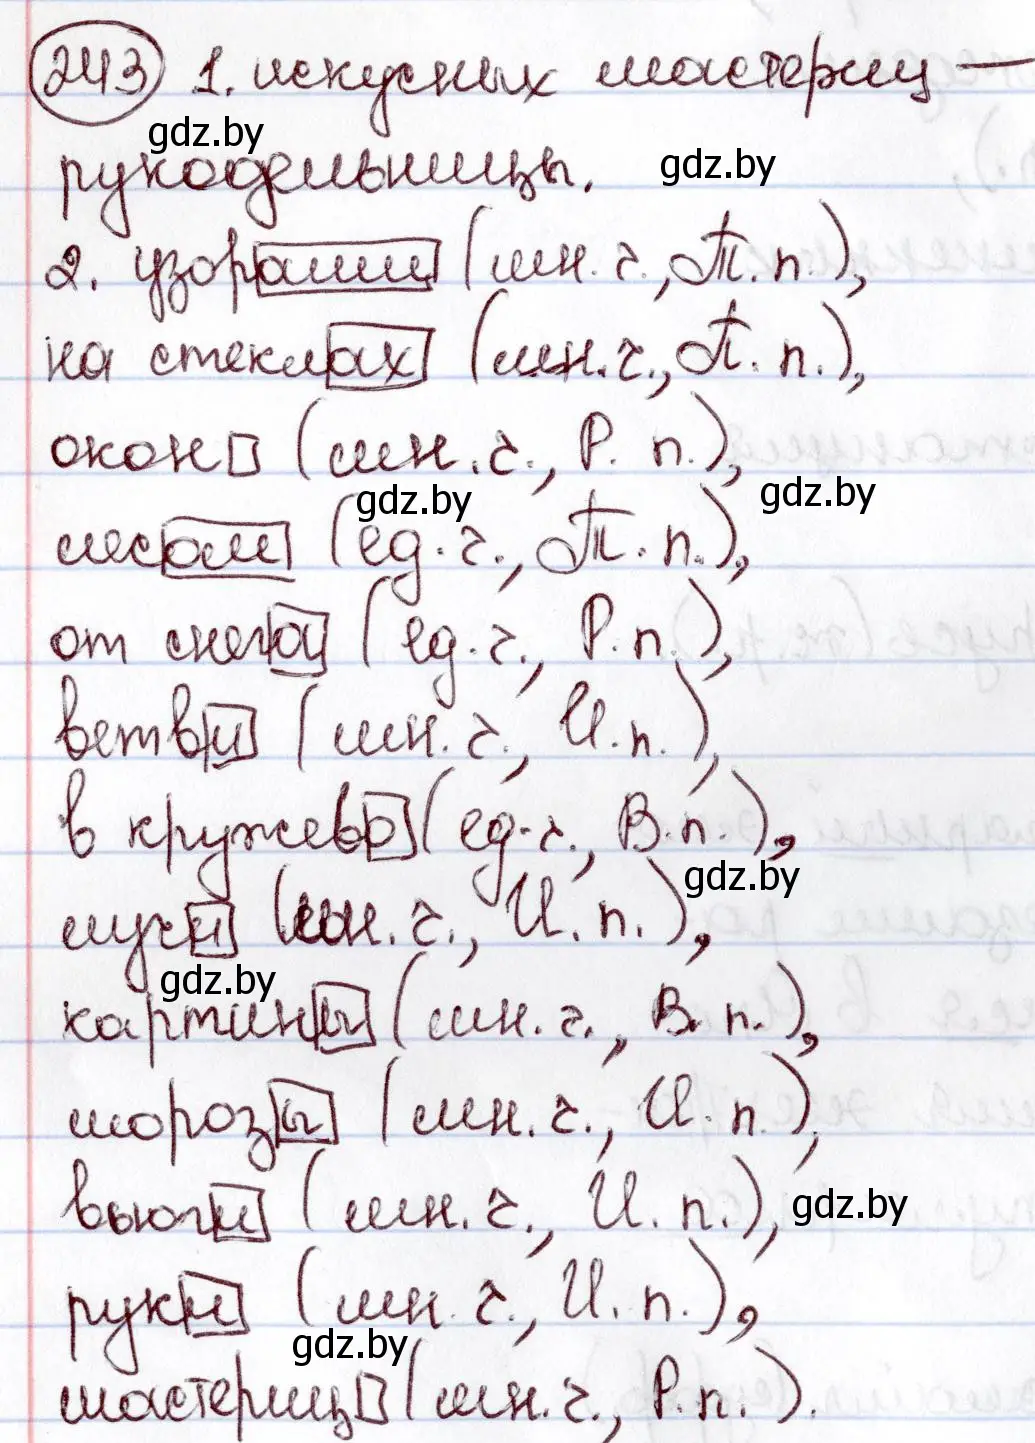 243 1. искусных мастериц —
gdz.by
рукодельницы. gdz.by
2. узорами (мн. ч., Т. п.),
на стеклах (мн. ч., П. п.),
окон (мн. ч., Р. п.),
gdz.by gdz.by
лесом (ед. ч., Т. п.),
от снега (ед. ч., Р. п.),
ветви (мн. ч., И. п.),
в кружево (ед. ч., В. п.),
gdz.by
лучи (мн. ч., И. п.),
gdz.by
картины (мн. ч., В. п.),
морозы (мн. ч., И. п.),
вьюги (мн. ч., И. п.), gdz.by
руки (мн. ч., И. п.),
gdz.by
мастериц (мн. ч., Р. п.).